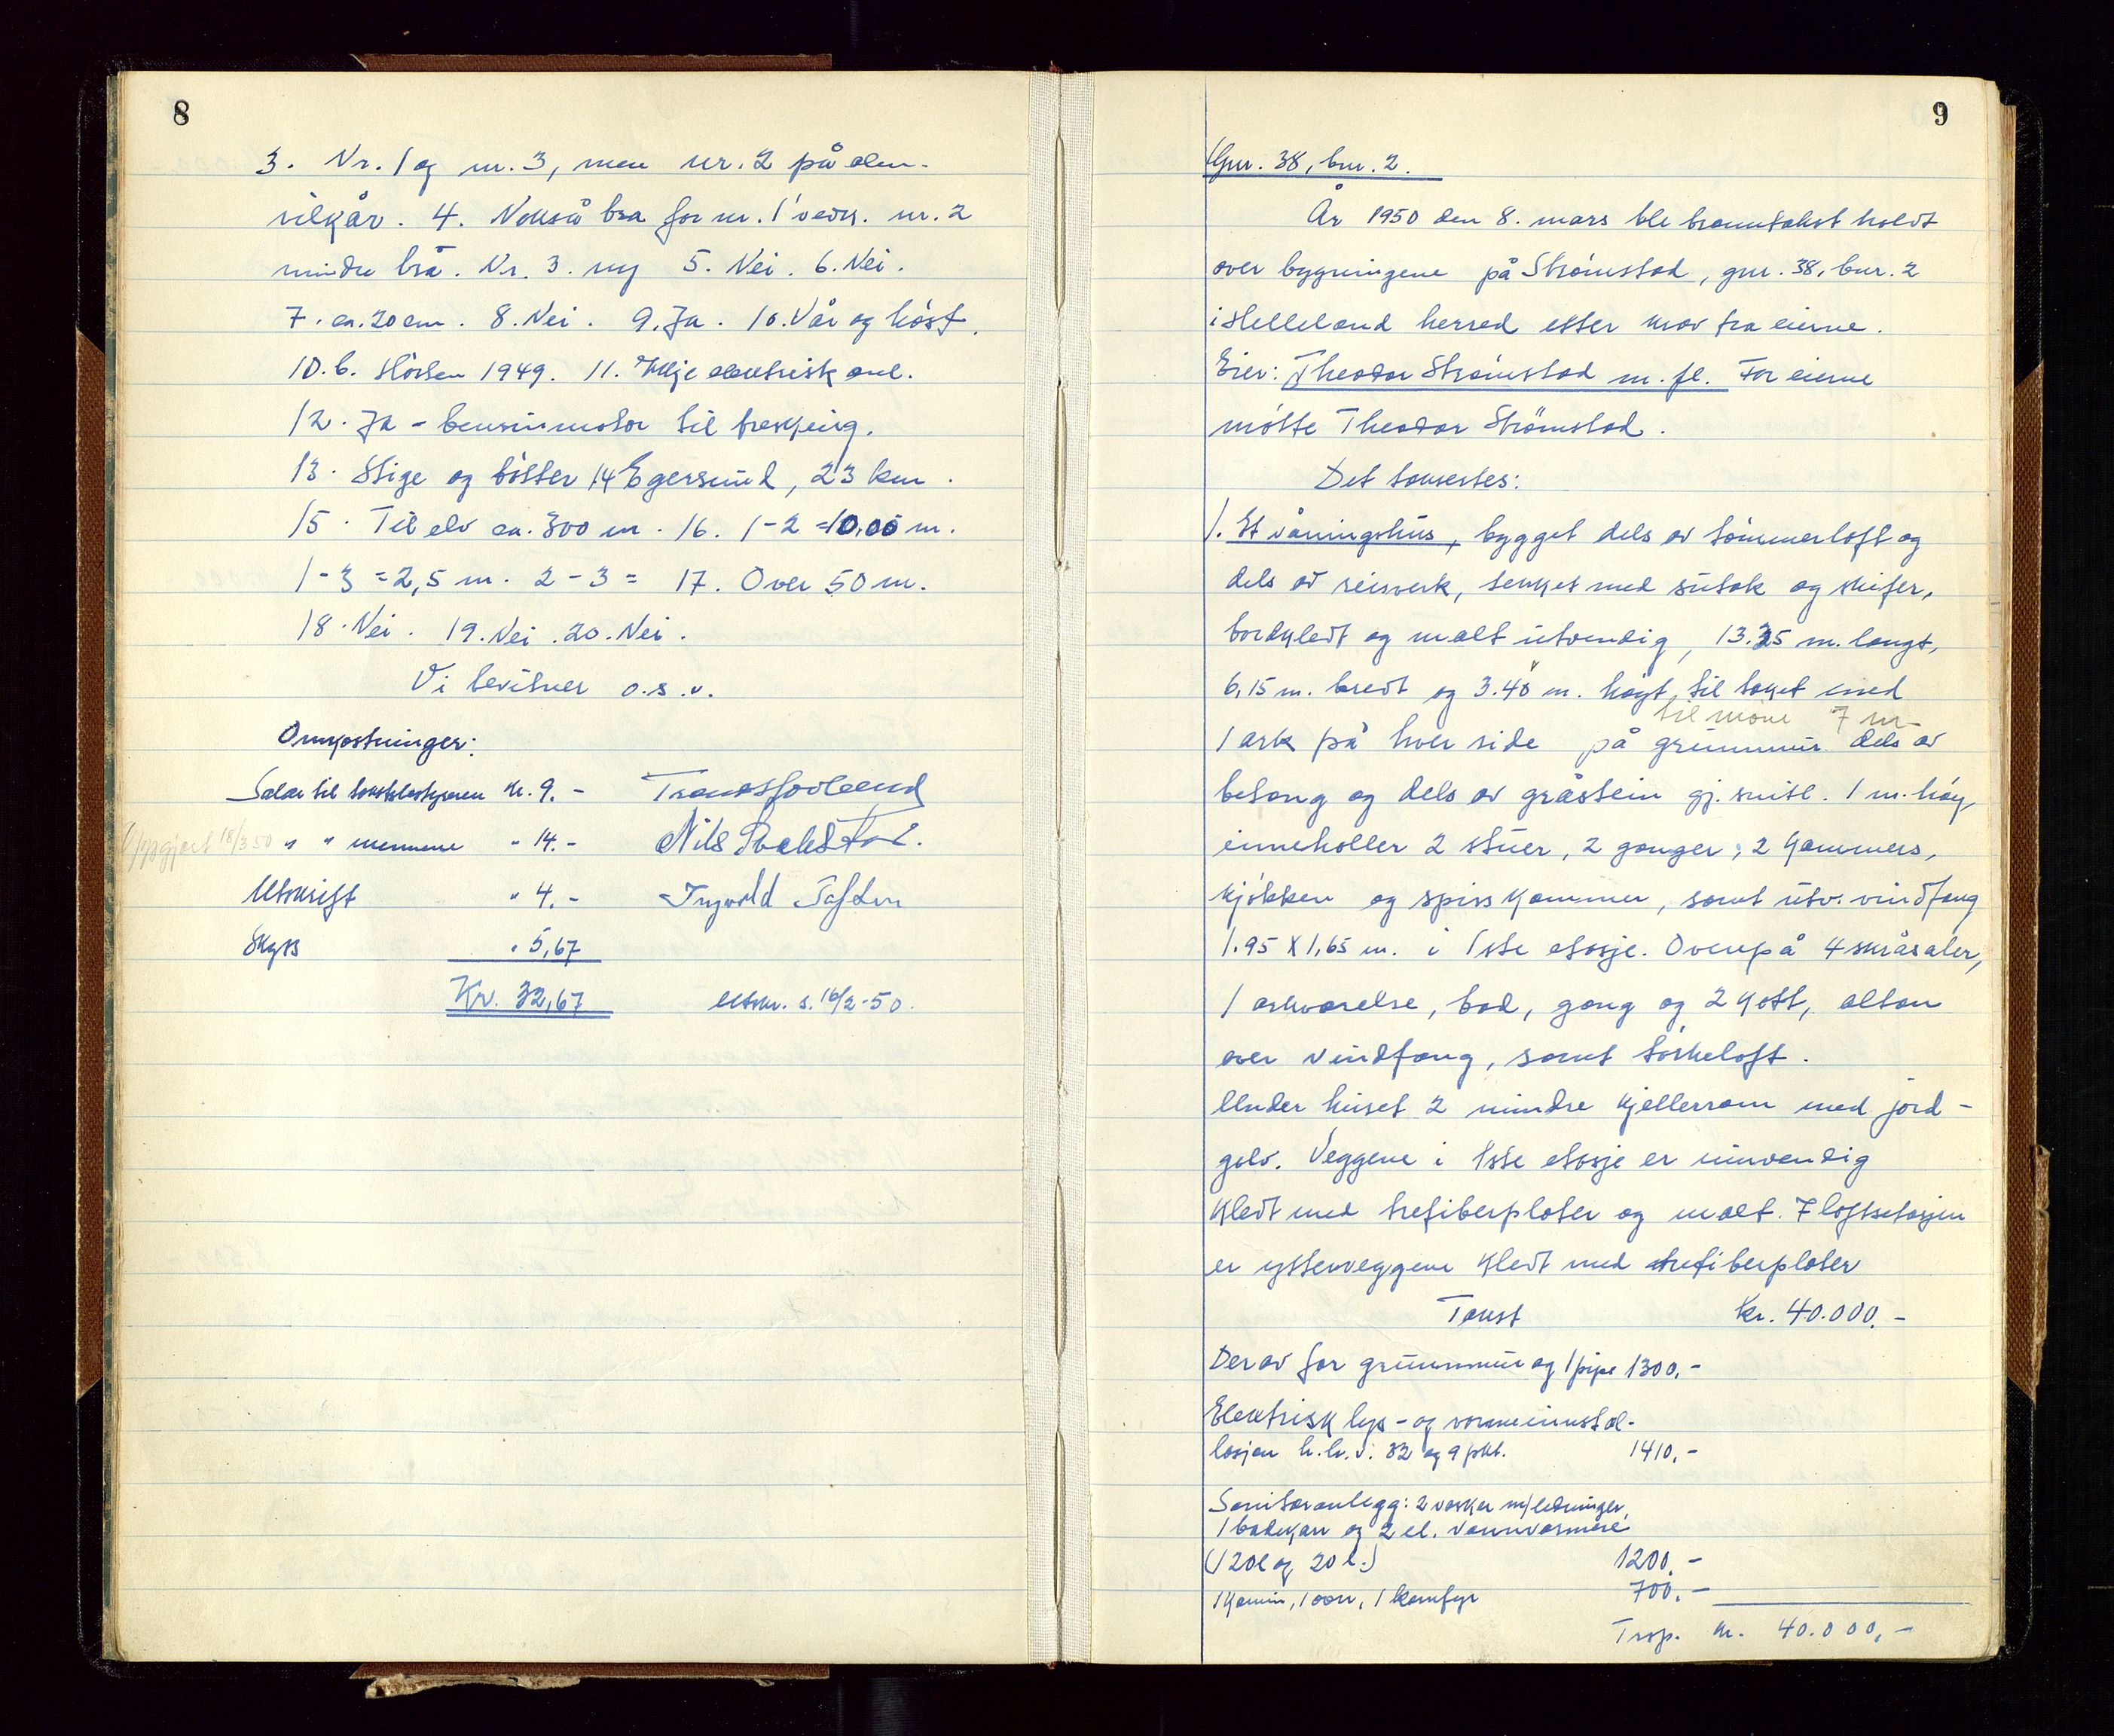 8
3. Nr. 1 og nr. 3, men nr. 2 på alm.
vilkår. 4. Nokså bra for nr. 1 vedk. nr. 2
mindre bra. Nr. 3. ny 5. Nei. 6. Nei.
7. ca. 20 cm. 8. Nei. 9. Ja. 10. Vår og høst.
10.b. Hösten 1949. 11. Ikkje elektrisk anl.
12. Ja - bensinmotor til treskjing.
13. Stige og bötter 14 Egersund, 23 km.
15. Til elv ca. 300 m. 16. 1-2 = 10.00 m.
1-3 = 2,5 m. 2-3 = 17. Over 50 m.
18. Nei. 19. Nei. 20. Nei.
Vi bevitner o.s.v.
Omkostninger:
Salær til takstbestyreren kr. 9.-
Oppgjort 18/3 50 " " mennene " 14.- Nils
Utskrift " 4.- Ingvald Taften
Skyss " 5,67
Kr. 32,67 Utskr. s. 16/2-50.
9
Gnr. 38, bnr. 2.
År 1950 den 8. mars ble branntakst holdt
over bygningene på Strømstad, gnr. 38, bnr. 2
i Helleland herred etter krav fra eierne.
Eier: Theodor Strømstad m. fl. For eierne
møtte Theodor Strömstad.
Det takseres:
1. Et våningshus, bygget dels av tømmerloft og
dels av reisverk, tekket med sutak og skifer,
bordkledt og malt utvendig, 13.35 m. langt,
6,15 m. bredt og 3.40 m. høgt til taket med
til møne 7 m
1 ark på hver side på grunnmur dels av
betong og dels av gråstein gj.snitl. 1 m. høy,
inneholler 2 stuer, 2 ganger, 2 kammers,
kjøkken og spiskammer, samt utv. vindfang
1.95 x 1,65 m. i 1ste etasje. Ovenpå 4 skråsaler,
1 arkværelse, bad, gang og 2 kott, altan
over vindfang, samt tørkeloft.
Under huset 2 mindre kjellerrom med jord-
golv. Veggene i 1ste etasje er innvendig
kledt med trefiberplater og malt. I loftsetasjen
er ytterveggene kledt med trefiberplater
Takst kr. 40.000.-
Derav for grunnmur og 1 pipe 1300.-
Elektrisk lys- og varmeinnstal-
lasjon h.h.v. 32 og 9 pkt. 1410.-
Sanitæranlegg: 2 vasker m/ledninger,
1 badekar og 2 el. vannvarmere
(120 l og 20 l.) 1200.-
1 kamin, 1 ovn, 1 komfyr 700.-
Trsp. kr. 40.000,-